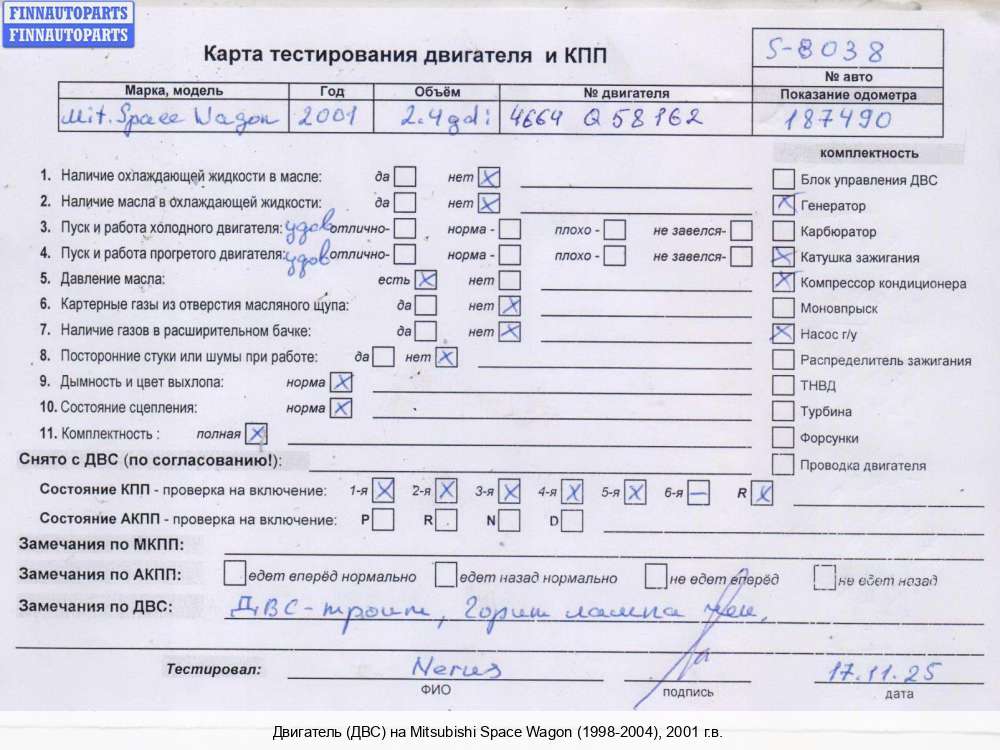 FINNAUTOPARTS
FINNAUTOPARTS
Карта тестирования двигателя и КПП
S-8038
№ авто
Марка, модель Год Объём № двигателя Показание одометра
Mit. Space Wagon 2001 2.4 gdi 4G64 QS8162 187490
комплектность
1. Наличие охлаждающей жидкости в масле: да нет X
2. Наличие масла в охлаждающей жидкости: да нет X
3. Пуск и работа холодного двигателя: удов отлично- норма - плохо - не завелся-
4. Пуск и работа прогретого двигателя: удов отлично- норма - плохо - не завелся-
5. Давление масла: есть X нет
6. Картерные газы из отверстия масляного щупа: да нет X
7. Наличие газов в расширительном бачке: да нет X
8. Посторонние стуки или шумы при работе: да нет X
9. Дымность и цвет выхлопа: норма X
10. Состояние сцепления: норма X
11. Комплектность : полная X
Блок управления ДВС
X Генератор
Карбюратор
X Катушка зажигания
X Компрессор кондиционера
Моновпрыск
X Насос г/у
Распределитель зажигания
ТНВД
Турбина
Форсунки
Проводка двигателя
Снято с ДВС (по согласованию!):
Состояние КПП - проверка на включение: 1-я X 2-я X 3-я X 4-я X 5-я X 6-я — R X
Состояние АКПП - проверка на включение: P R N D
Замечания по МКПП:
Замечания по АКПП: едет вперёд нормально едет назад нормально не едет вперёд не едет назад
Замечания по ДВС: ДВС-троит, Горит лампа чек.
Тестировал: Nerus 17.11.25
ФИО подпись дата
Двигатель (ДВС) на Mitsubishi Space Wagon (1998-2004), 2001 г.в.